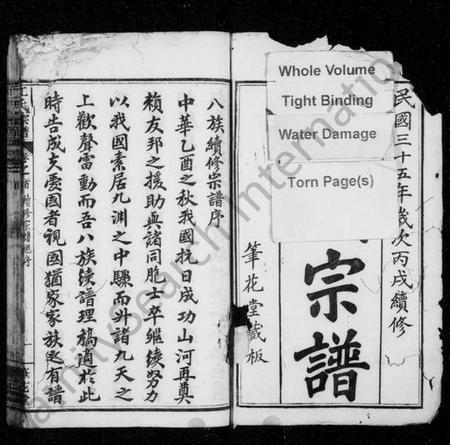 Whole Volume
Tight Binding
Water Damage
Torn Page(s)
民國三十五年歲次丙戌續修
宗譜
筆花堂藏板
八族續修宗譜序
中華乙酉之秋我國抗日成功山河再奠
賴友邦之援助與諸同胞士卒繼續努力
以我國素居九淵之中驟而升諸九天之
上歡聲雷動而吾八族續譜理稿適於此
時告成夫憂國者視國猶家家族之有譜